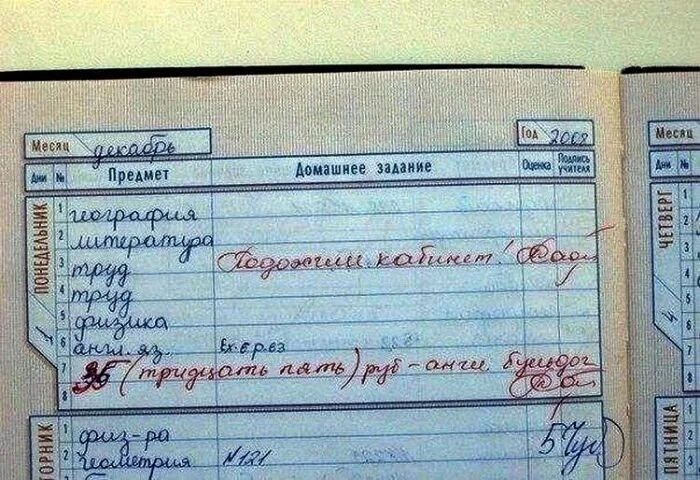 Месяц декабрь Год 2008 Месяц
Дни № Предмет Домашнее задание Оценка Подпись учителя Дни №
ПОНЕДЕЛЬНИК 1 география ЧЕТВЕРГ 1
2 литература 2
3 труд Подожгли кабинет! 3
4 труд 4
5 физика
1 6 англ. яз. Ex. 6 p. 63 4
7 35 (тридцать пять) руб - англ. бульдог 7
8 8
ТОРНИК 1 физ-ра 5 ПЯТНИЦА 1
2 геометрия №121 2
3